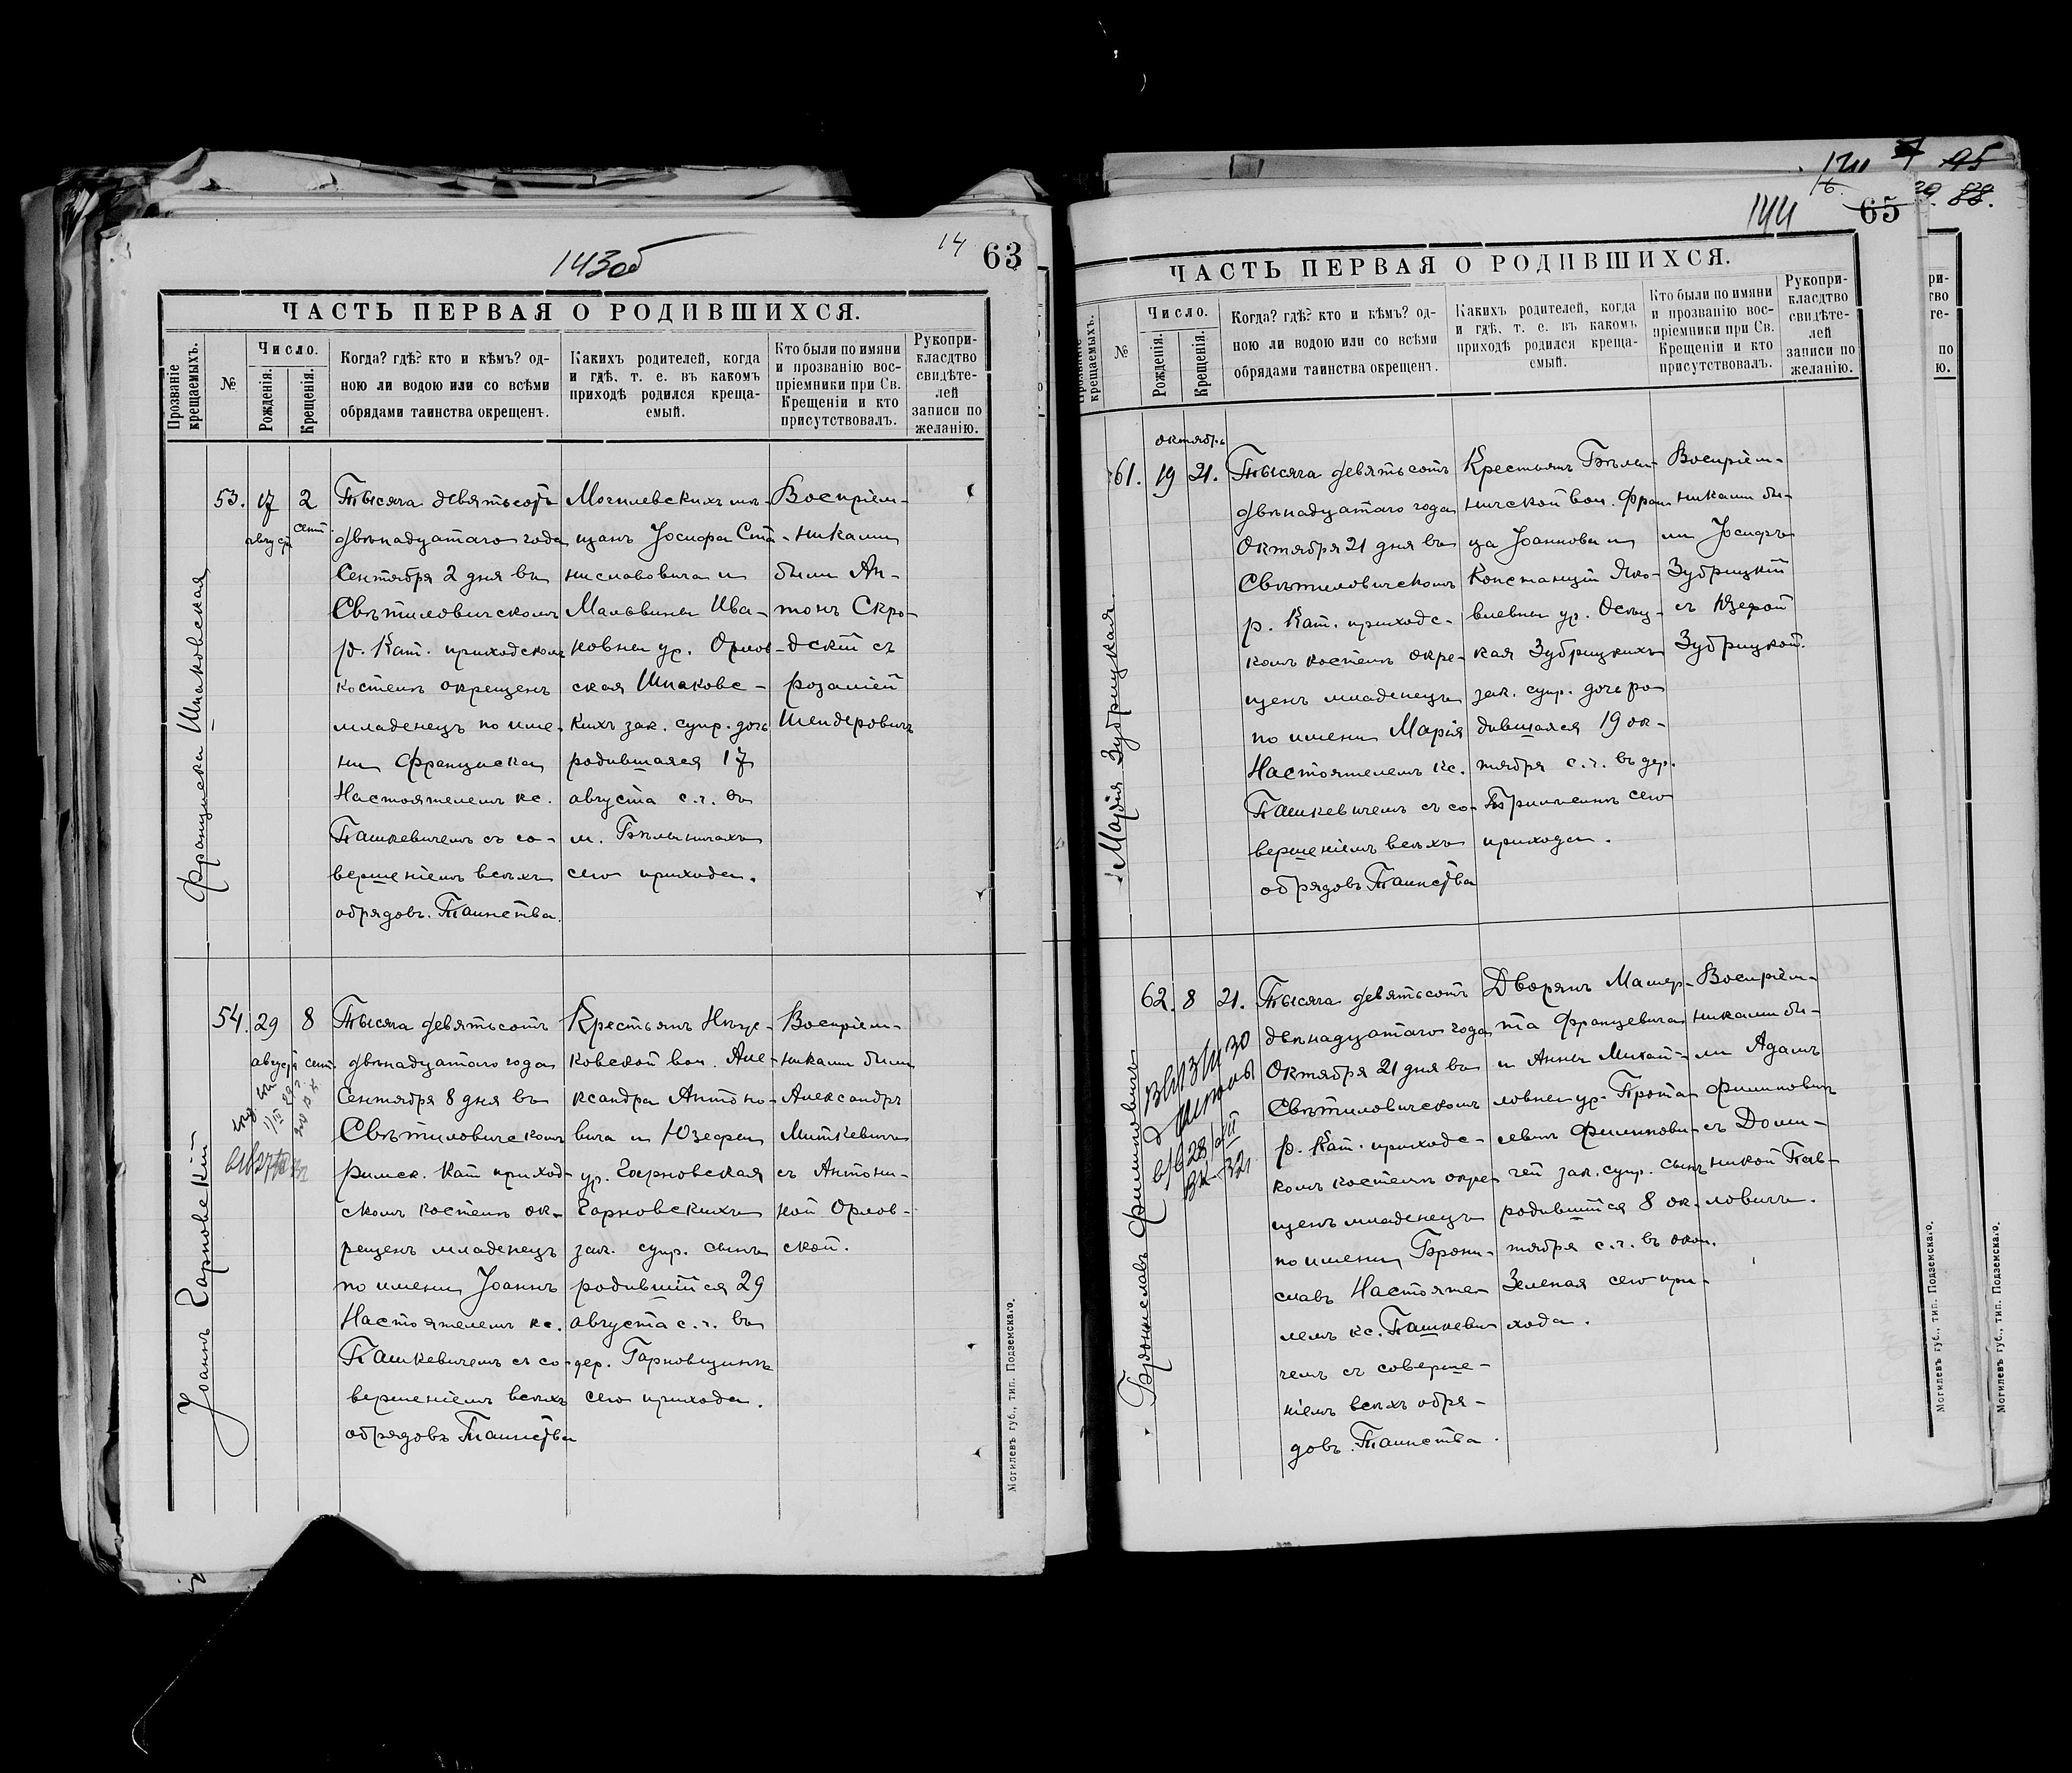 143об
14 63
ЧАСТЬ ПЕРВАЯ О РОДИВШИХСЯ.
Прозваніе крещаемыхъ.
№
Число.
Рожденія.
Крещенія.
Когда? гдѣ? кто и кѣмъ? од-
ною ли водою или со всѣми
обрядами таинства окрещенъ.
Какихъ родителей, когда
и гдѣ, т. е. въ какомъ
приходѣ родился креща-
емый.
Кто были по имяни
и прозванію вос-
пріемники при Св.
Крещеніи и кто
присутствовалъ.
Рукопри-
кладтво
свидѣте-
лей
записи по
желанію.
Франциска Шпаковская
53.
17 августа
2 сент.
Тысяча девятьсотъ
двѣнадцатаго года
Сентября 2 дня въ
Свѣтиловическомъ
р. Кат. приходскомъ
костелѣ окрещенъ
младенецъ по име-
ни Франциска
Настоятелемъ кс.
Пашкевичемъ съ со-
вершеніемъ всѣхъ
обрядовъ Таинства.
Могилевскихъ мѣ-
щанъ Іосифа Ста-
ниславовича и
Мальвины Ива-
новны ур. Орлов-
ская Шпаковс-
кихъ зак. супр. дочь
родившаяся 17
августа с.г. въ
м. Бѣлыничахъ
сего прихода.
Воспріем-
никами
были Ан-
тонъ Скро-
дскій съ
Розаліей
Шендеровичъ
Іоаннъ Гарновскій
54.
29 августа
8 сент.
Тысяча девятьсотъ
двѣнадцатаго года
Сентября 8 дня въ
Свѣтиловическомъ
римск. Кат приход-
скомъ костелѣ ок-
рещенъ младенецъ
по имени Іоаннъ
Настоятелемъ кс.
Пашкевичемъ съ со-
вершеніемъ всѣхъ
обрядовъ Таинства
Крестьянъ
вол. Але-
ксандра Антоно-
вича и Юзефы
ур. Гарновская
Гарновскихъ
зак. супр. сынъ
родившійся 29
августа с.г. въ
дер. Гарновщинѣ
сего прихода.
Воспріем-
никами были
Александръ
Миткевичъ
съ Антони-
ной Орлов-
ской.
Могилевъ губ., тип. Подземскаго.
144
65
ЧАСТЬ ПЕРВАЯ О РОДИВШИХСЯ.
Прозваніе крещаемыхъ.
№
Число.
Рожденія.
Крещенія.
Когда? гдѣ? кто и кѣмъ? од-
ною ли водою или со всѣми
обрядами таинства окрещенъ.
Какихъ родителей, когда
и гдѣ, т. е. въ какомъ
приходѣ родился креща-
емый.
Кто были по имяни
и прозванію вос-
пріемники при Св.
Крещеніи и кто
присутствовалъ.
Рукопри-
класдтво
свидѣте-
лей
записи по
желанію.
октябрь
Марія Зубрицкая.
61. 19 21.
Тысяча девятьсотъ
двѣнадцатаго года
Октября 21 дня въ
Свѣтиловическомъ
р. Кат. приходс-
комъ костелѣ окре-
щенъ младенецъ
по имени Марія
Настоятелемъ кс.
Пашкевичемъ съ со-
вершеніемъ всѣхъ
обрядовъ Таинства
Крестьянъ Бѣлы-
ничской вол. Фран
ца Іоаннова и
Констанціи Яко-
влевны ур. Осец-
кая Зубрицкихъ
зак. супр. дочь ро
дившаяся 19 ок-
тября с.г. въ дер.
сего
прихода.
Воспріем-
никами бы-
ли Іосифъ
Зубрицкій
съ Юзефой
Зубрицкой.
Брониславъ Филиповичъ
62. 8 21.
Тысяча девятьсотъ
двѣнадцатаго года
Октября 21 дня въ
Свѣтиловическомъ
р. Кат. приходс-
комъ костелѣ окре-
щенъ младенецъ
по имени Брони-
славъ Настояте-
лемъ кс. Пашкеви
чемъ съ соверше-
ніемъ всѣхъ обря-
довъ Таинства.
Дворянъ Мамер-
та Францевича
и Анны Михай-
ловны ур. Прота-
севичъ Филипови-
чей зак. супр. сынъ
родившійся 8 ок.
тября с.г. въ окол.
Зеленая сего при-
хода.
Воспріем-
никами бы-
ли Адамъ
Филиповичъ
съ Доми-
никой Пав-
ловичъ.
Могилевъ губ., тип. Подземскаго.
Могилевъ губ., тип. Подземскаго.